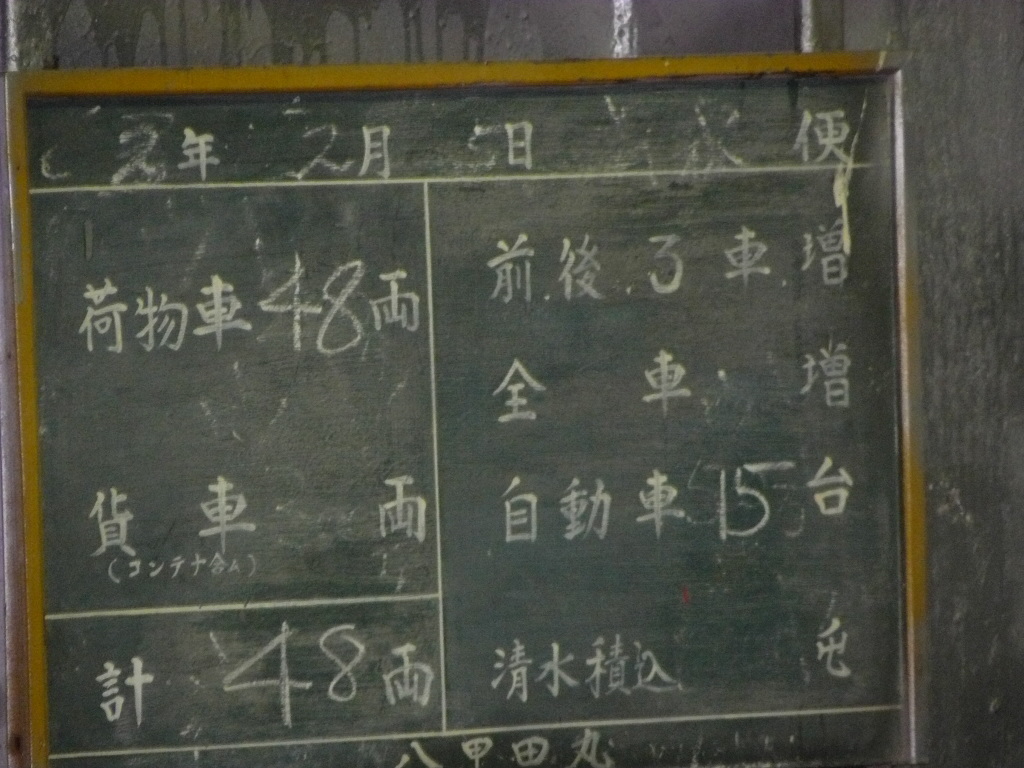 年 月 日 便
荷物車 48 両
貨車 両
(コンテナ含ム)
計 48 両
前後 車 増
全車 増
自動車 15 台
清水積込 屯
八甲田丸